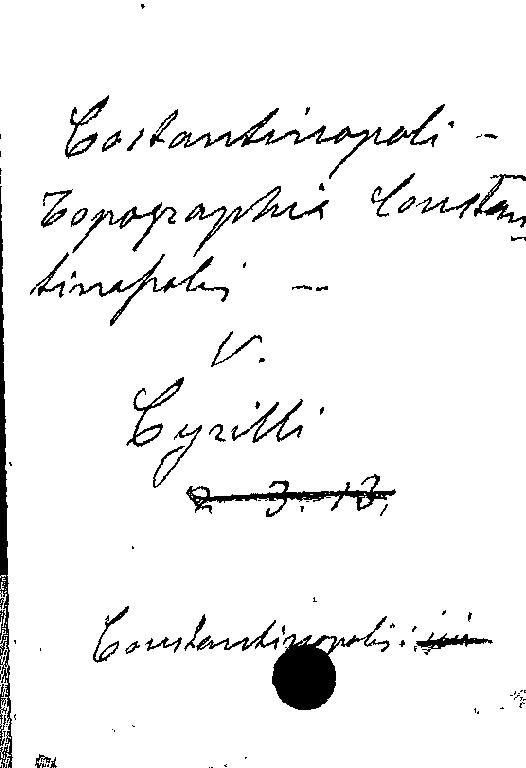 Costantinopoli -
Topographia Constan
tinopolis —
V.
Cyrilli
2 3. 13.
Constantinopolis: